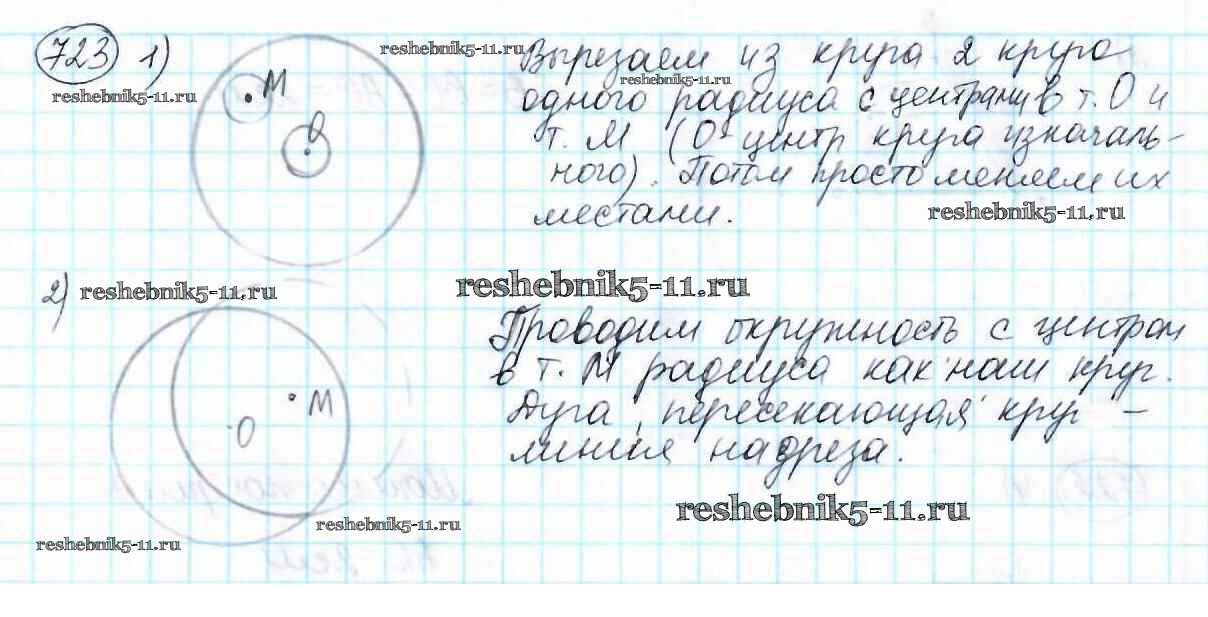 723 1)
reshebnik5-11.ru
reshebnik5-11.ru
М
О
Вырезаем из круга 2 круга
reshebnik5-11.ru
одного радиуса с центрами в т. О и
т. М (О - центр круга изначаль-
ного). Потом просто меняем их
местами.
reshebnik5-11.ru
2)
reshebnik5-11.ru
reshebnik5-11.ru
М
О
Проводим окружность с центром
в т. М радиуса как наш круг.
Дуга, пересекающая круг –
линия надреза.
reshebnik5-11.ru
reshebnik5-11.ru
reshebnik5-11.ru